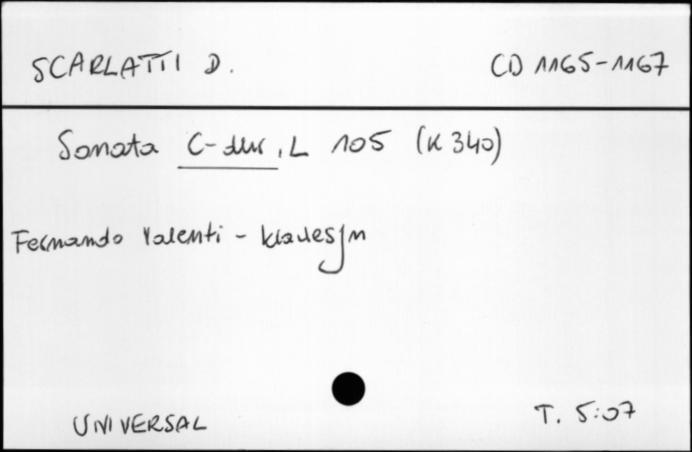 SCARLATTI D. CD 1165-1167
Sonata C-dur, L 105 (K 340)
Fernando Valenti - klavesyn
UNIVERSAL T. 5:07